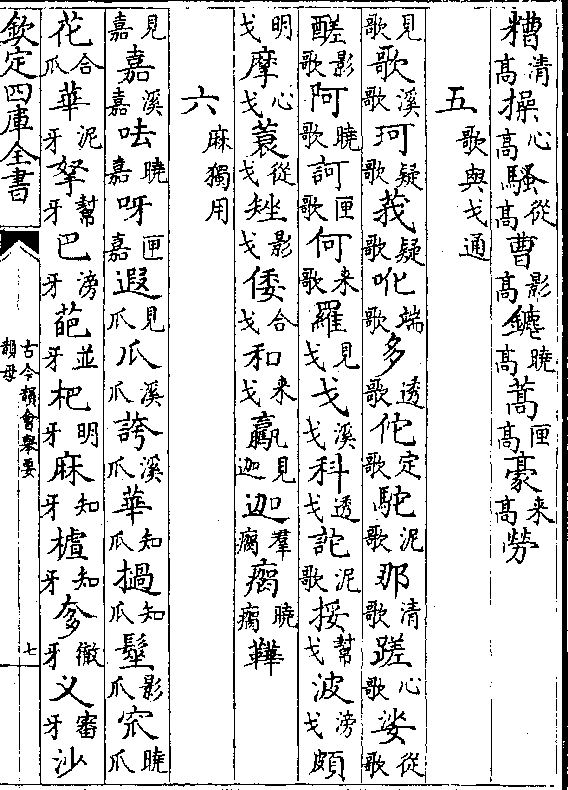 糟清高操心高騷從高曹影高鏕曉高蒿匣高豪来高勞
五歌與戈通
見歌歌溪歌珂疑歌莪疑歌吪端歌多透歌佗定歌駝泥歌那清歌蹉心歌娑從歌
醝影歌阿曉歌訶匣歌何来歌羅見戈戈溪戈科透戈詑泥歌捼幫戈波滂戈頗
明戈摩心戈蓑從戈矬影戈倭合戈和来戈羸見迦迦羣瘸瘸曉瘸鞾
六麻獨用
見嘉嘉溪嘉呿曉嘉呀匣嘉遐見爪瓜溪爪誇溪爪華知爪撾知爪髽影爪窊曉爪
花合爪華泥牙拏幫牙巴滂牙葩並牙杷明牙麻知牙樝知牙奓徹牙叉審牙沙
欽定四庫全書
古今韻會舉要
韻母
七